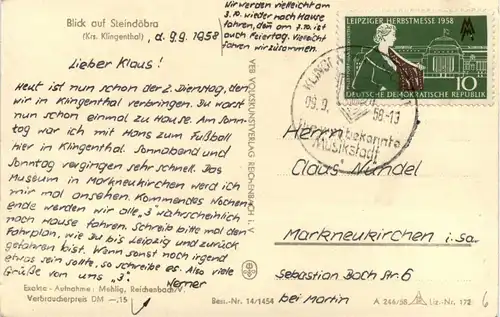 Blick auf Steindöbra
(Krs. Klingenthal)
, d. 9.9. 1958
Wir werden vielleicht am
3.10. wieder nach Hause
fahren, denn am 7.10. ist
auch Feiertag. Vielleicht
fahren wir zusammen.
Lieber Klaus!
Heut ist nun schon der 2. Dienstag, den
wir in Klingenthal verbringen. Du warst
nun schon einmal zu Hause. Am Sonn-
tag war ich mit Hans zum Fußball
hier in Klingenthal. Sonnabend und
Sonntag vergingen sehr schnell. Das
Museum in Markneukirchen werd ich
mir mal ansehen. Kommendes Wochen-
ende werden wir alle "3" wahrscheinlich
nach Hause fahren. Schreib bitte mal den
Fahrplan, wie Du bis Leipzig und zurück
gefahren bist. Wenn sonst noch irgend
etwas sein sollte, so schreibe es. Also viele
Grüße von uns "3"
Werner
Exakta - Aufnahme: Mehlig, Reichenbach/V.
Verbraucherpreis DM —,15
VEB VOLKSKUNSTVERLAG REICHENBACH i. V.
Best.-Nr. 14/1454
LEIPZIGER HERBSTMESSE 1958
MM
10
DEUTSCHE DEMOKRATISCHE REPUBLIK
09.9.
58-13
bekannte
Musikstadt
Herrn
Claus Nündel
Markneukirchen i. Sa.
Sebastian Bach Str. 6
bei Martin
A 244/58 Liz.-Nr. 172
6